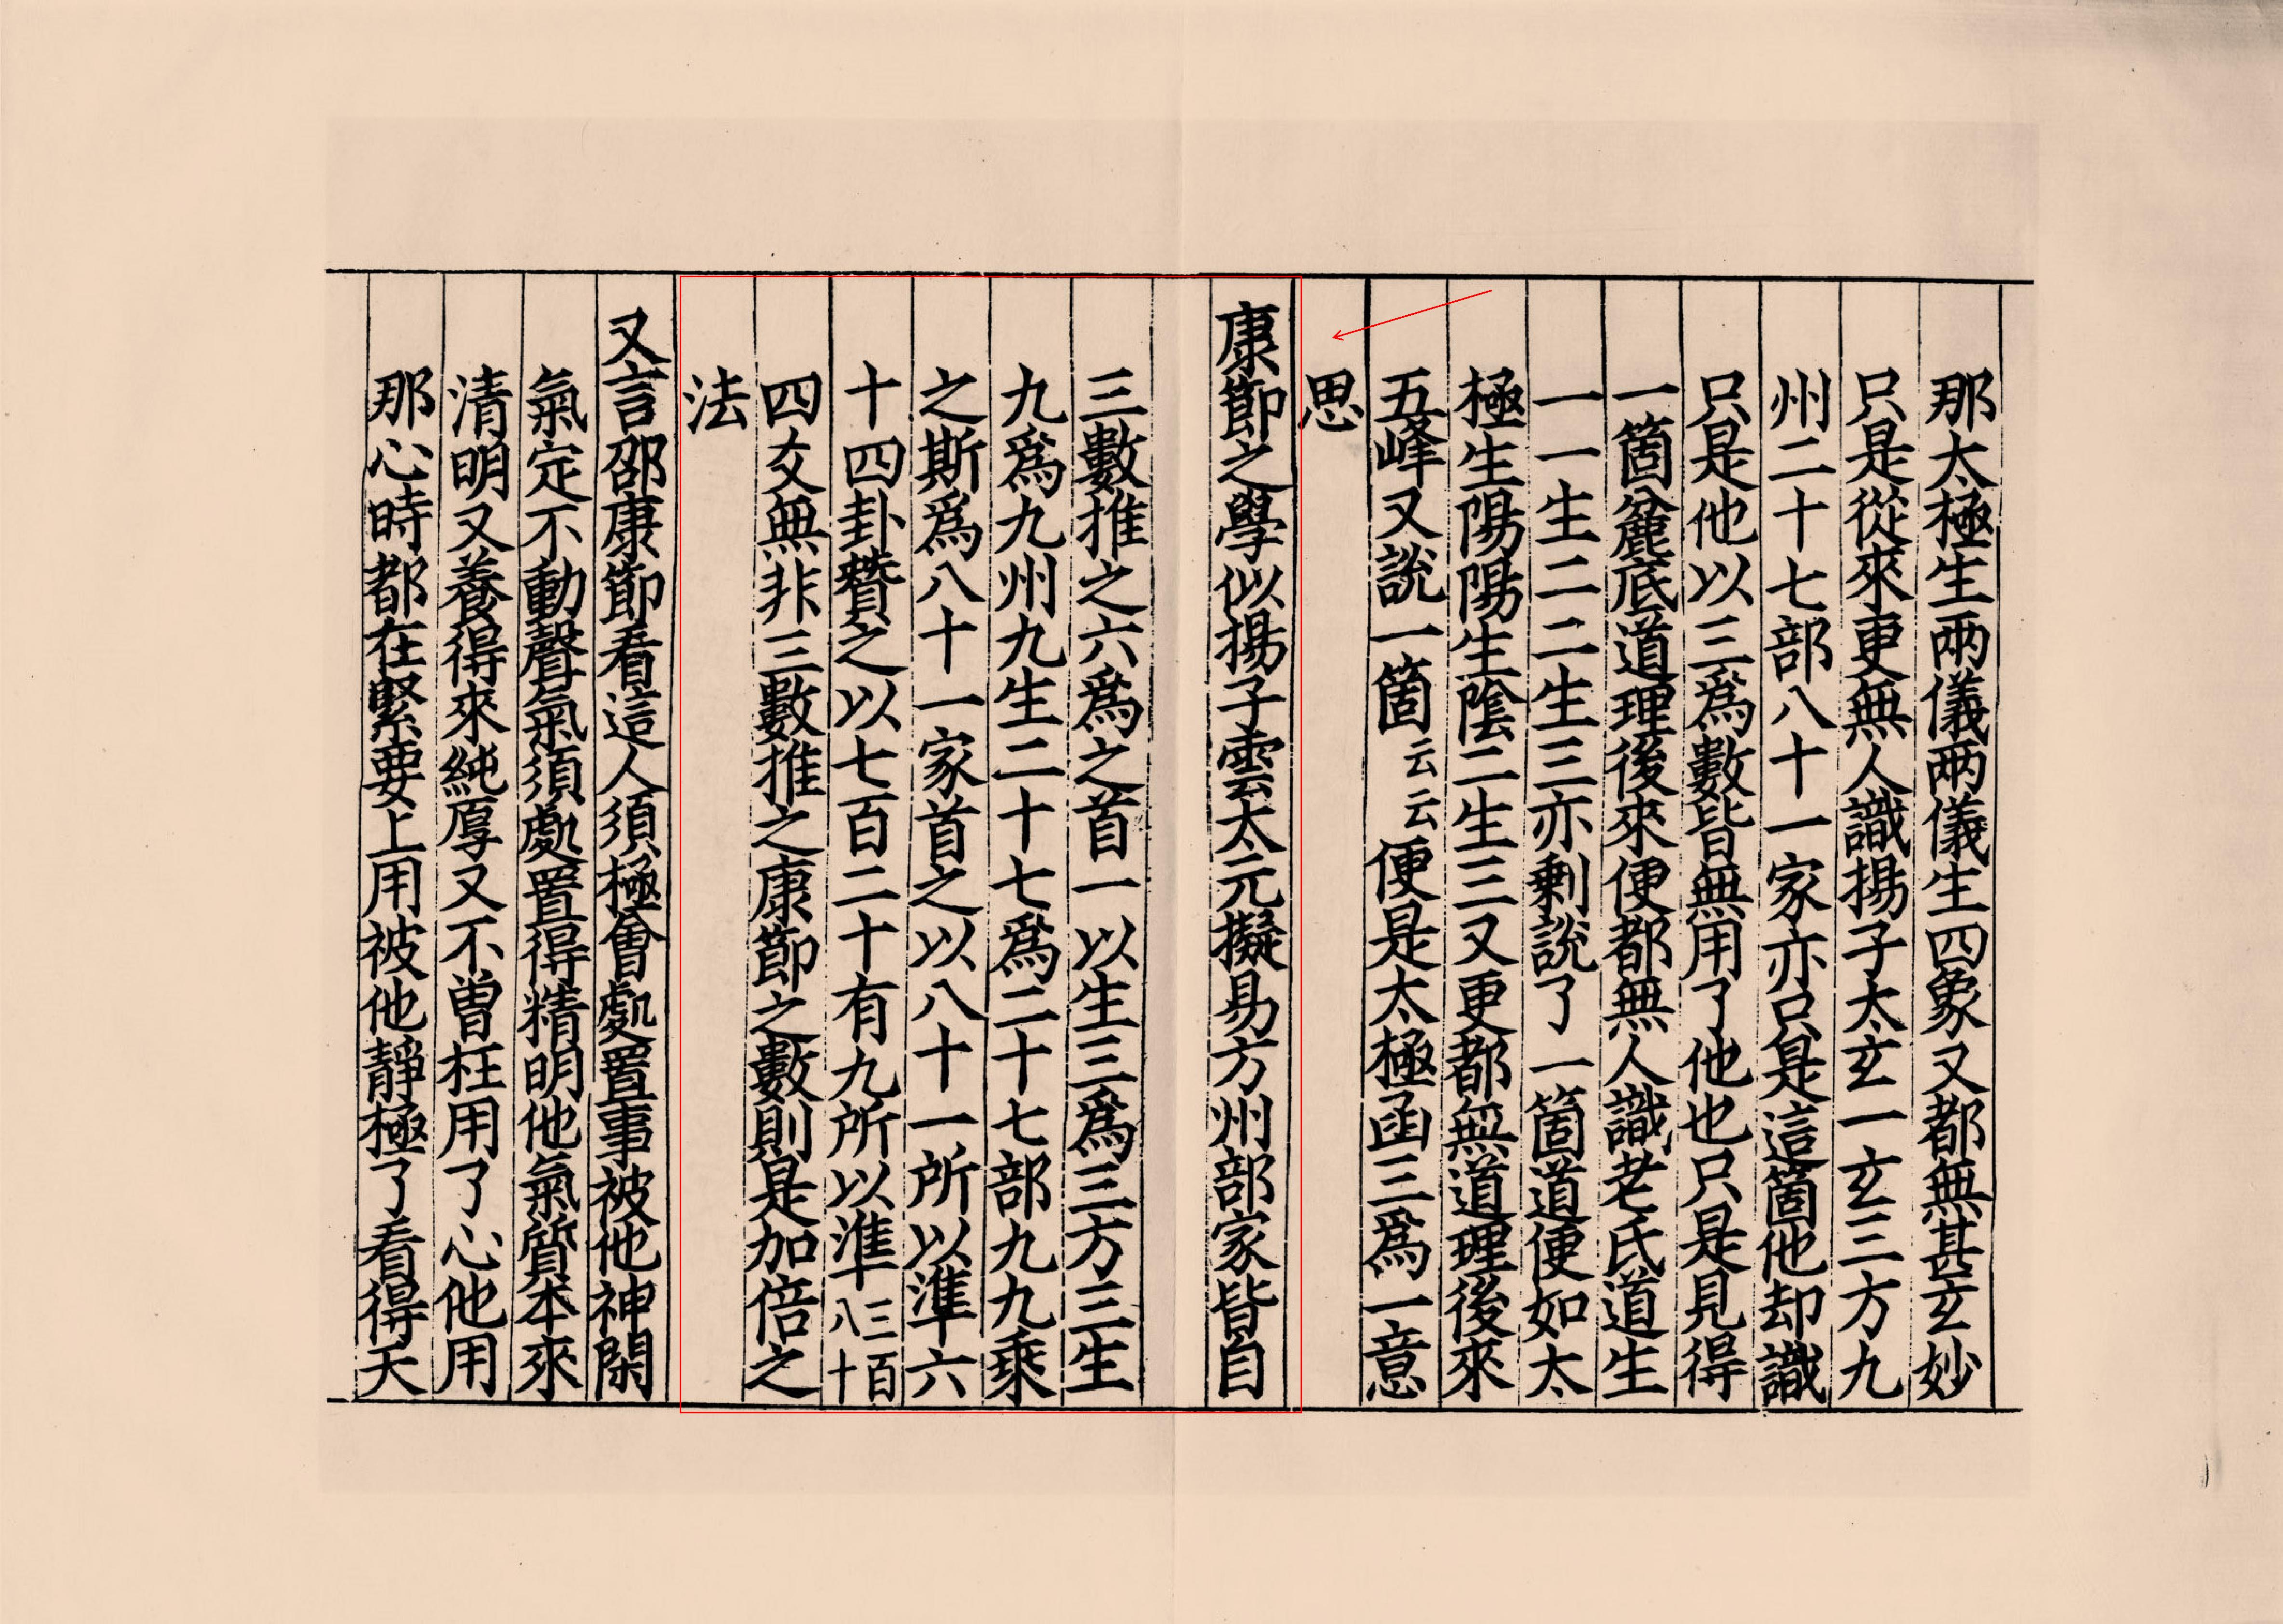 那太極生兩儀兩儀生四象又都無甚玄妙
只是從來更無人識揚子太玄一玄三方九
州二十七部八十一家亦只是這箇他却識
只是他以三爲數皆無用了他也只是見得
一箇麄底道理後來便都無人識老氏道生
一一生二二生三亦剩說了一箇道便如太
極生陽陽生陰二生三又更都無道理後來
五峰又說一箇云云便是太極函三爲一意
思
康節之學似揚子雲太元擬易方州部家皆自
三數推之六爲之首一以生三爲三方三生
九爲九州九生二十七爲二十七部九九乘
之斯爲八十一家首之以八十一所以準六
十四卦贊之以七百二十有九所以準三百八十
四爻無非三數推之康節之數則是加倍之
法
又言邵康節看這人須極會處置事被他神閑
氣定不動聲氣須處置得精明他氣質本來
清明又養得來純厚又不曾枉用了心他用
那心時都在緊要上用被他靜極了看得天